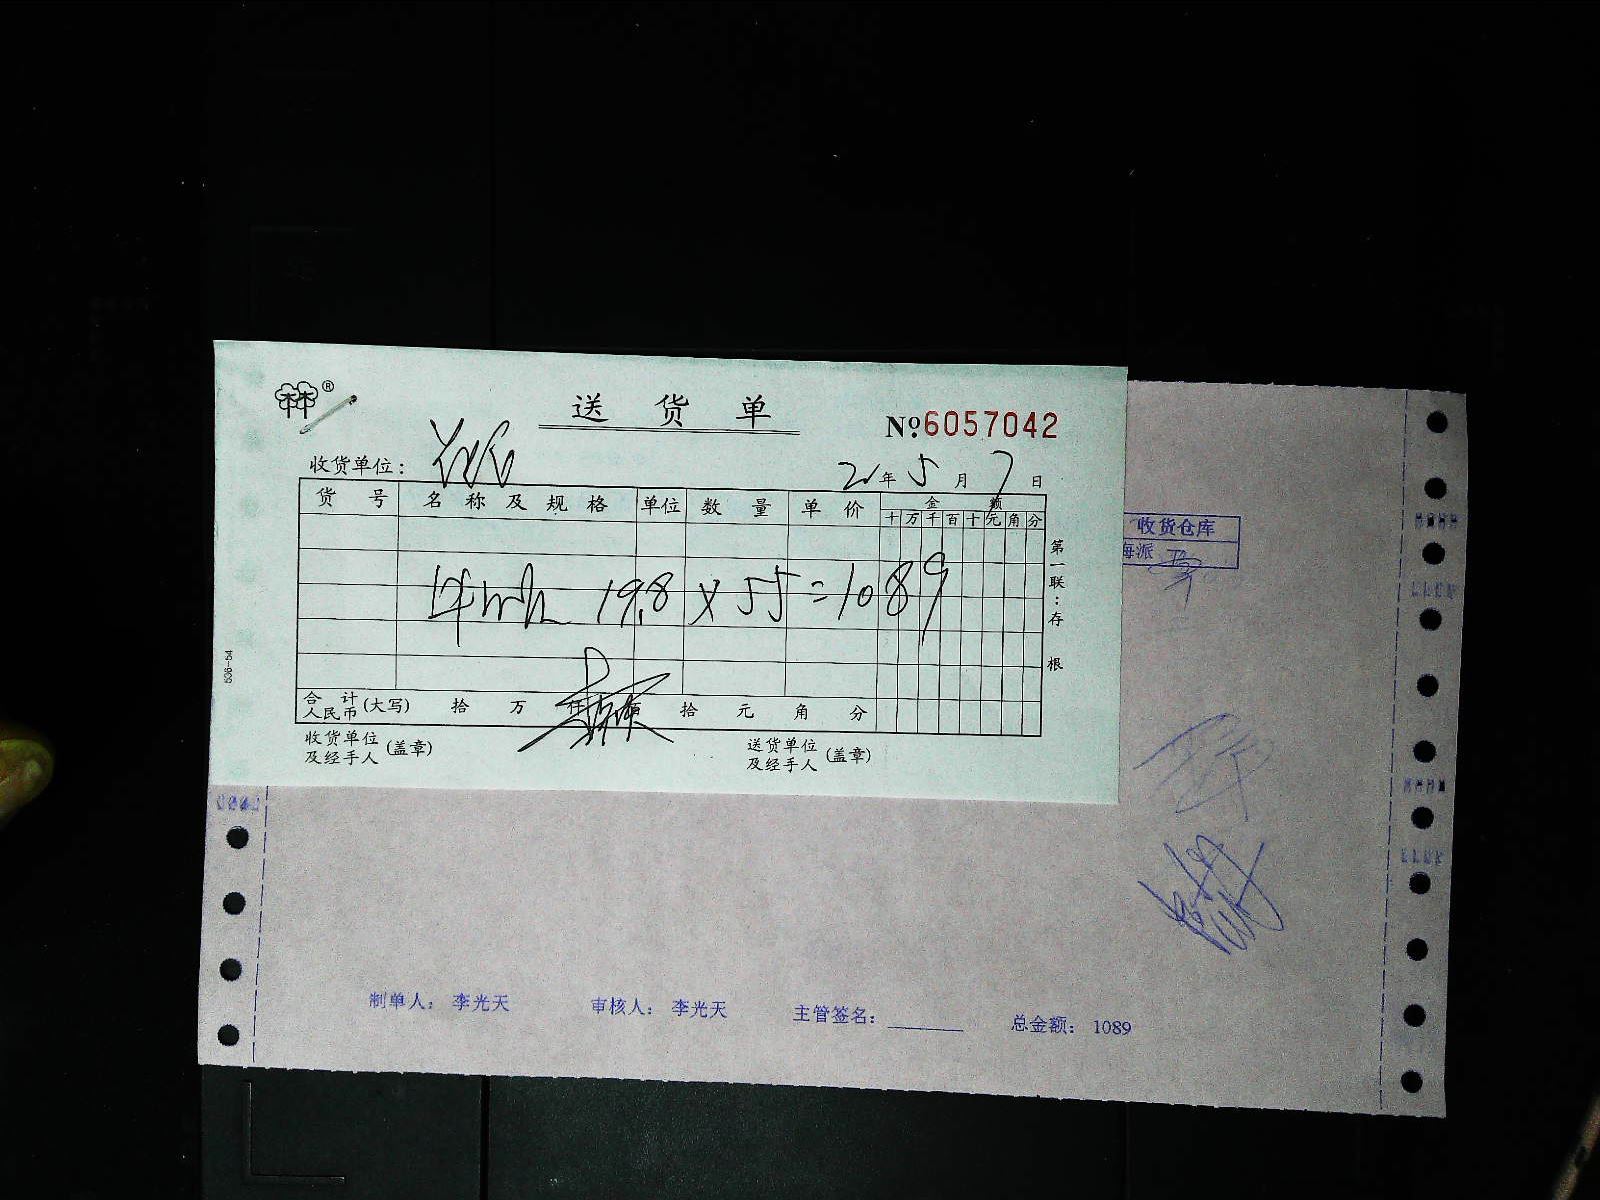 ®
送 货 单
№6057042
收货单位:
21年 5月 7日
货 号 名 称 及 规 格 单位 数 量 单 价 金 额
十 万 千 百 十 元 角 分
19.8 × 55 = 1089
第一联:存 根
合 计
人民币
(大写) 拾 万 仟 佰 拾 元 角 分
收货单位
及经手人
(盖章)
送货单位
及经手人
(盖章)
536-54
收货仓库
海派
制单人: 李光天 审核人: 李光天 主管签名: 总金额: 1089